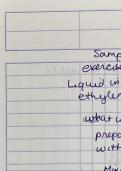 Samp
exercis
Liquid in
ethylen
what i
prepa
with
Mi